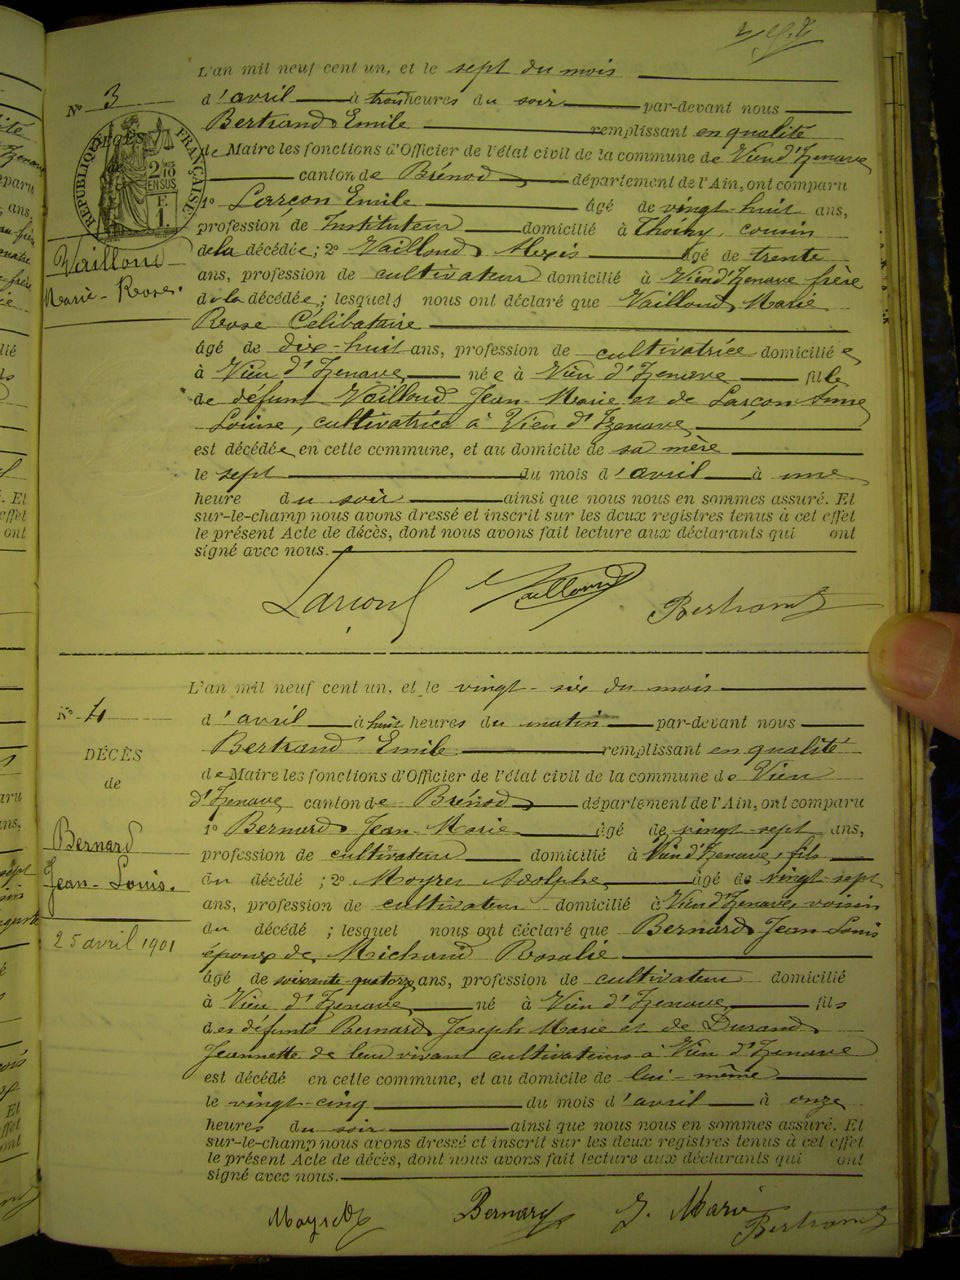 L'an mil neuf cent un, et le sept du mois
N° 3
d'avril à trois heures du soir par-devant nous
Bertrand Emile remplissant en qualité
DÉCÈS
RÉPUBLIQUE FRANÇAISE
2/10 EN SUS
F. 1
de Maire les fonctions d'Officier de l'état civil de la commune de Vieu d'Izenave
canton de Brénod département de l'Ain, ont comparu
1° Larçon Emile âgé de vingt-huit ans,
profession de Instituteur domicilié à Thoiry, cousin
Vailloud
Marie-Rose.
de la décédée; 2° Vailloud Alexis âgé de trente
ans, profession de cultivateur domicilié à Vieu d'Izenave frère
de la décédée; lesquels nous ont déclaré que Vailloud Marie
Rose Célibataire
âgé de dix-huit ans, profession de cultivatrice domiciliée
à Vieu d'Izenave née à Vieu d'Izenave fille
de défunt Vailloud Jean-Marie et de Larçon Anne
Louise, cultivatrice à Vieu d'Izenave
est décédée en cette commune, et au domicile de sa mère
le sept du mois d'avril à une
heure du soir ainsi que nous nous en sommes assuré. Et
sur-le-champ nous avons dressé et inscrit sur les deux registres tenus à cet effet
le présent Acte de décès, dont nous avons fait lecture aux déclarants qui ont
signé avec nous.
Larçon E Vailloud Bertrand
L'an mil neuf cent un, et le vingt-six du mois
N° 4
d'avril à huit heures du matin par-devant nous
DÉCÈS
de
Bertrand Emile remplissant en qualité
de Maire les fonctions d'Officier de l'état civil de la commune de Vieu
d'Izenave canton de Brénod département de l'Ain, ont comparu
Bernard
Jean-Louis.
25 avril 1901
1° Bernard Jean-Marie âgé de vingt-sept ans,
profession de cultivateur domicilié à Vieu d'Izenave, fils
du décédé; 2° Moyret Adolphe âgé de vingt-sept
ans, profession de cultivateur domicilié à Vieu d'Izenave, voisin
du décédé; lesquel nous ont déclaré que Bernard Jean-Louis
époux de Michaud Rosalie
âgé de soixante-quatorze ans, profession de cultivateur domicilié
à Vieu d'Izenave né à Vieu d'Izenave fils
des défunts Bernard Joseph Marie et de Durand
Jeannette de leur vivant cultivateurs à Vieu d'Izenave
est décédé en cette commune, et au domicile de lui-même
le vingt-cinq du mois d'avril à onze
heures du soir ainsi que nous nous en sommes assuré. Et
sur-le-champ nous avons dressé et inscrit sur les deux registres tenus à cet effet
le présent Acte de décès, dont nous avons fait lecture aux déclarants qui ont
signé avec nous.
Bernard J. Marie Bertrand